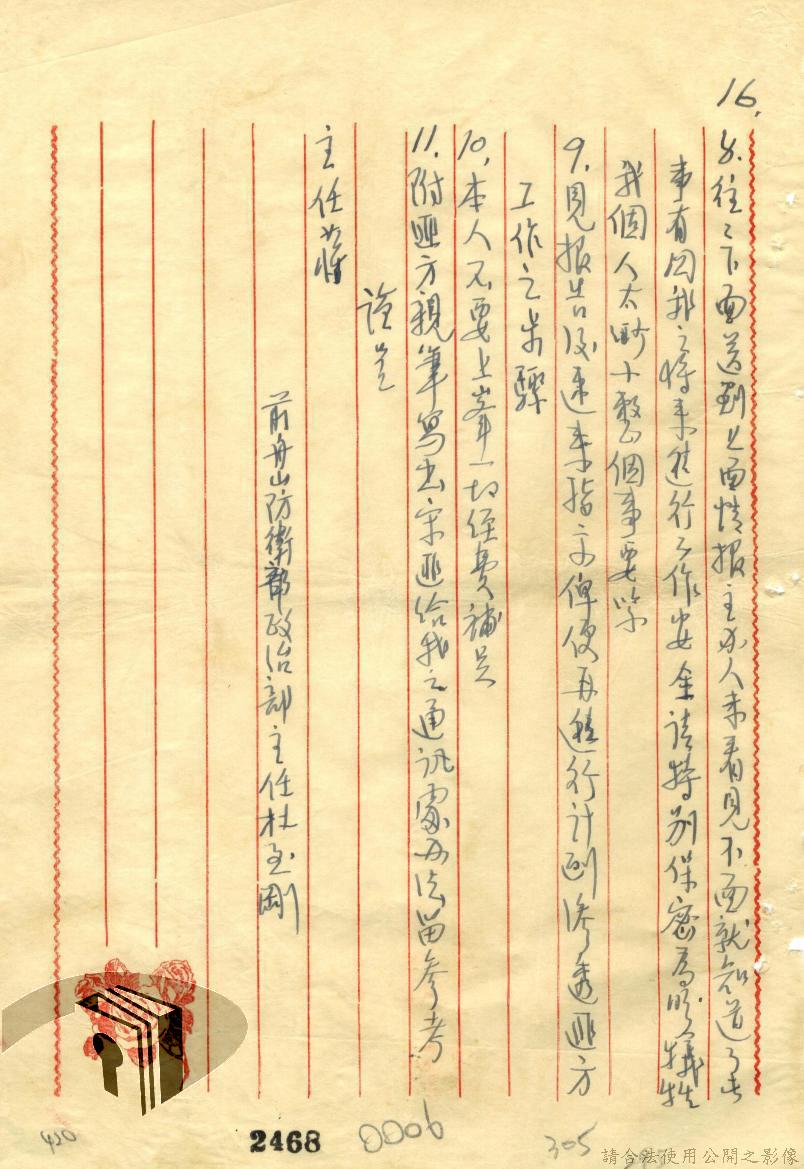 16.
8.往々下面送到上面情报主办人未看見下面就知道了此
事有関我之将来進行工作安全請特别保密為盼牺牲
我個人太渺小整個事要紧
9.見报告後速来指示俾便再進行计劃渗透匪方
工作之步驟
10.本人不要上峯一切经费補足
11.附匪方親筆写出宋匪给我之通訊處办法留参考
謹呈
主任蔣
前舟山防衛部政治部主任杜至剛
450
2468
9000
305
請合法使用公開之影像